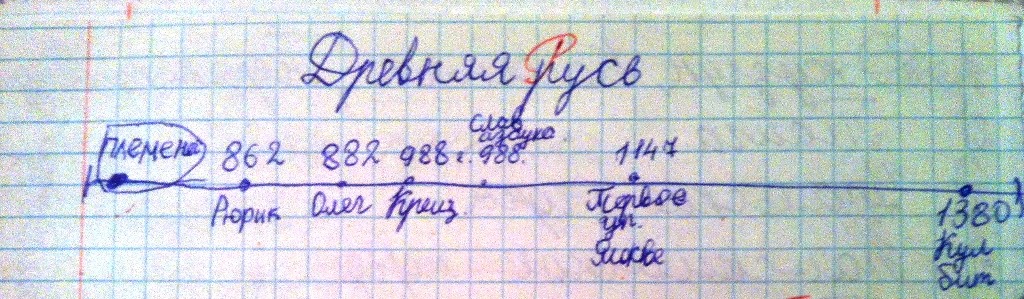 Древняя Русь
племена
862
882
988 г.
слав
азбука
988.
1147
Рюрик
Олег
Крещ.
Первое
уп.
Москве
1380
Кул
бит